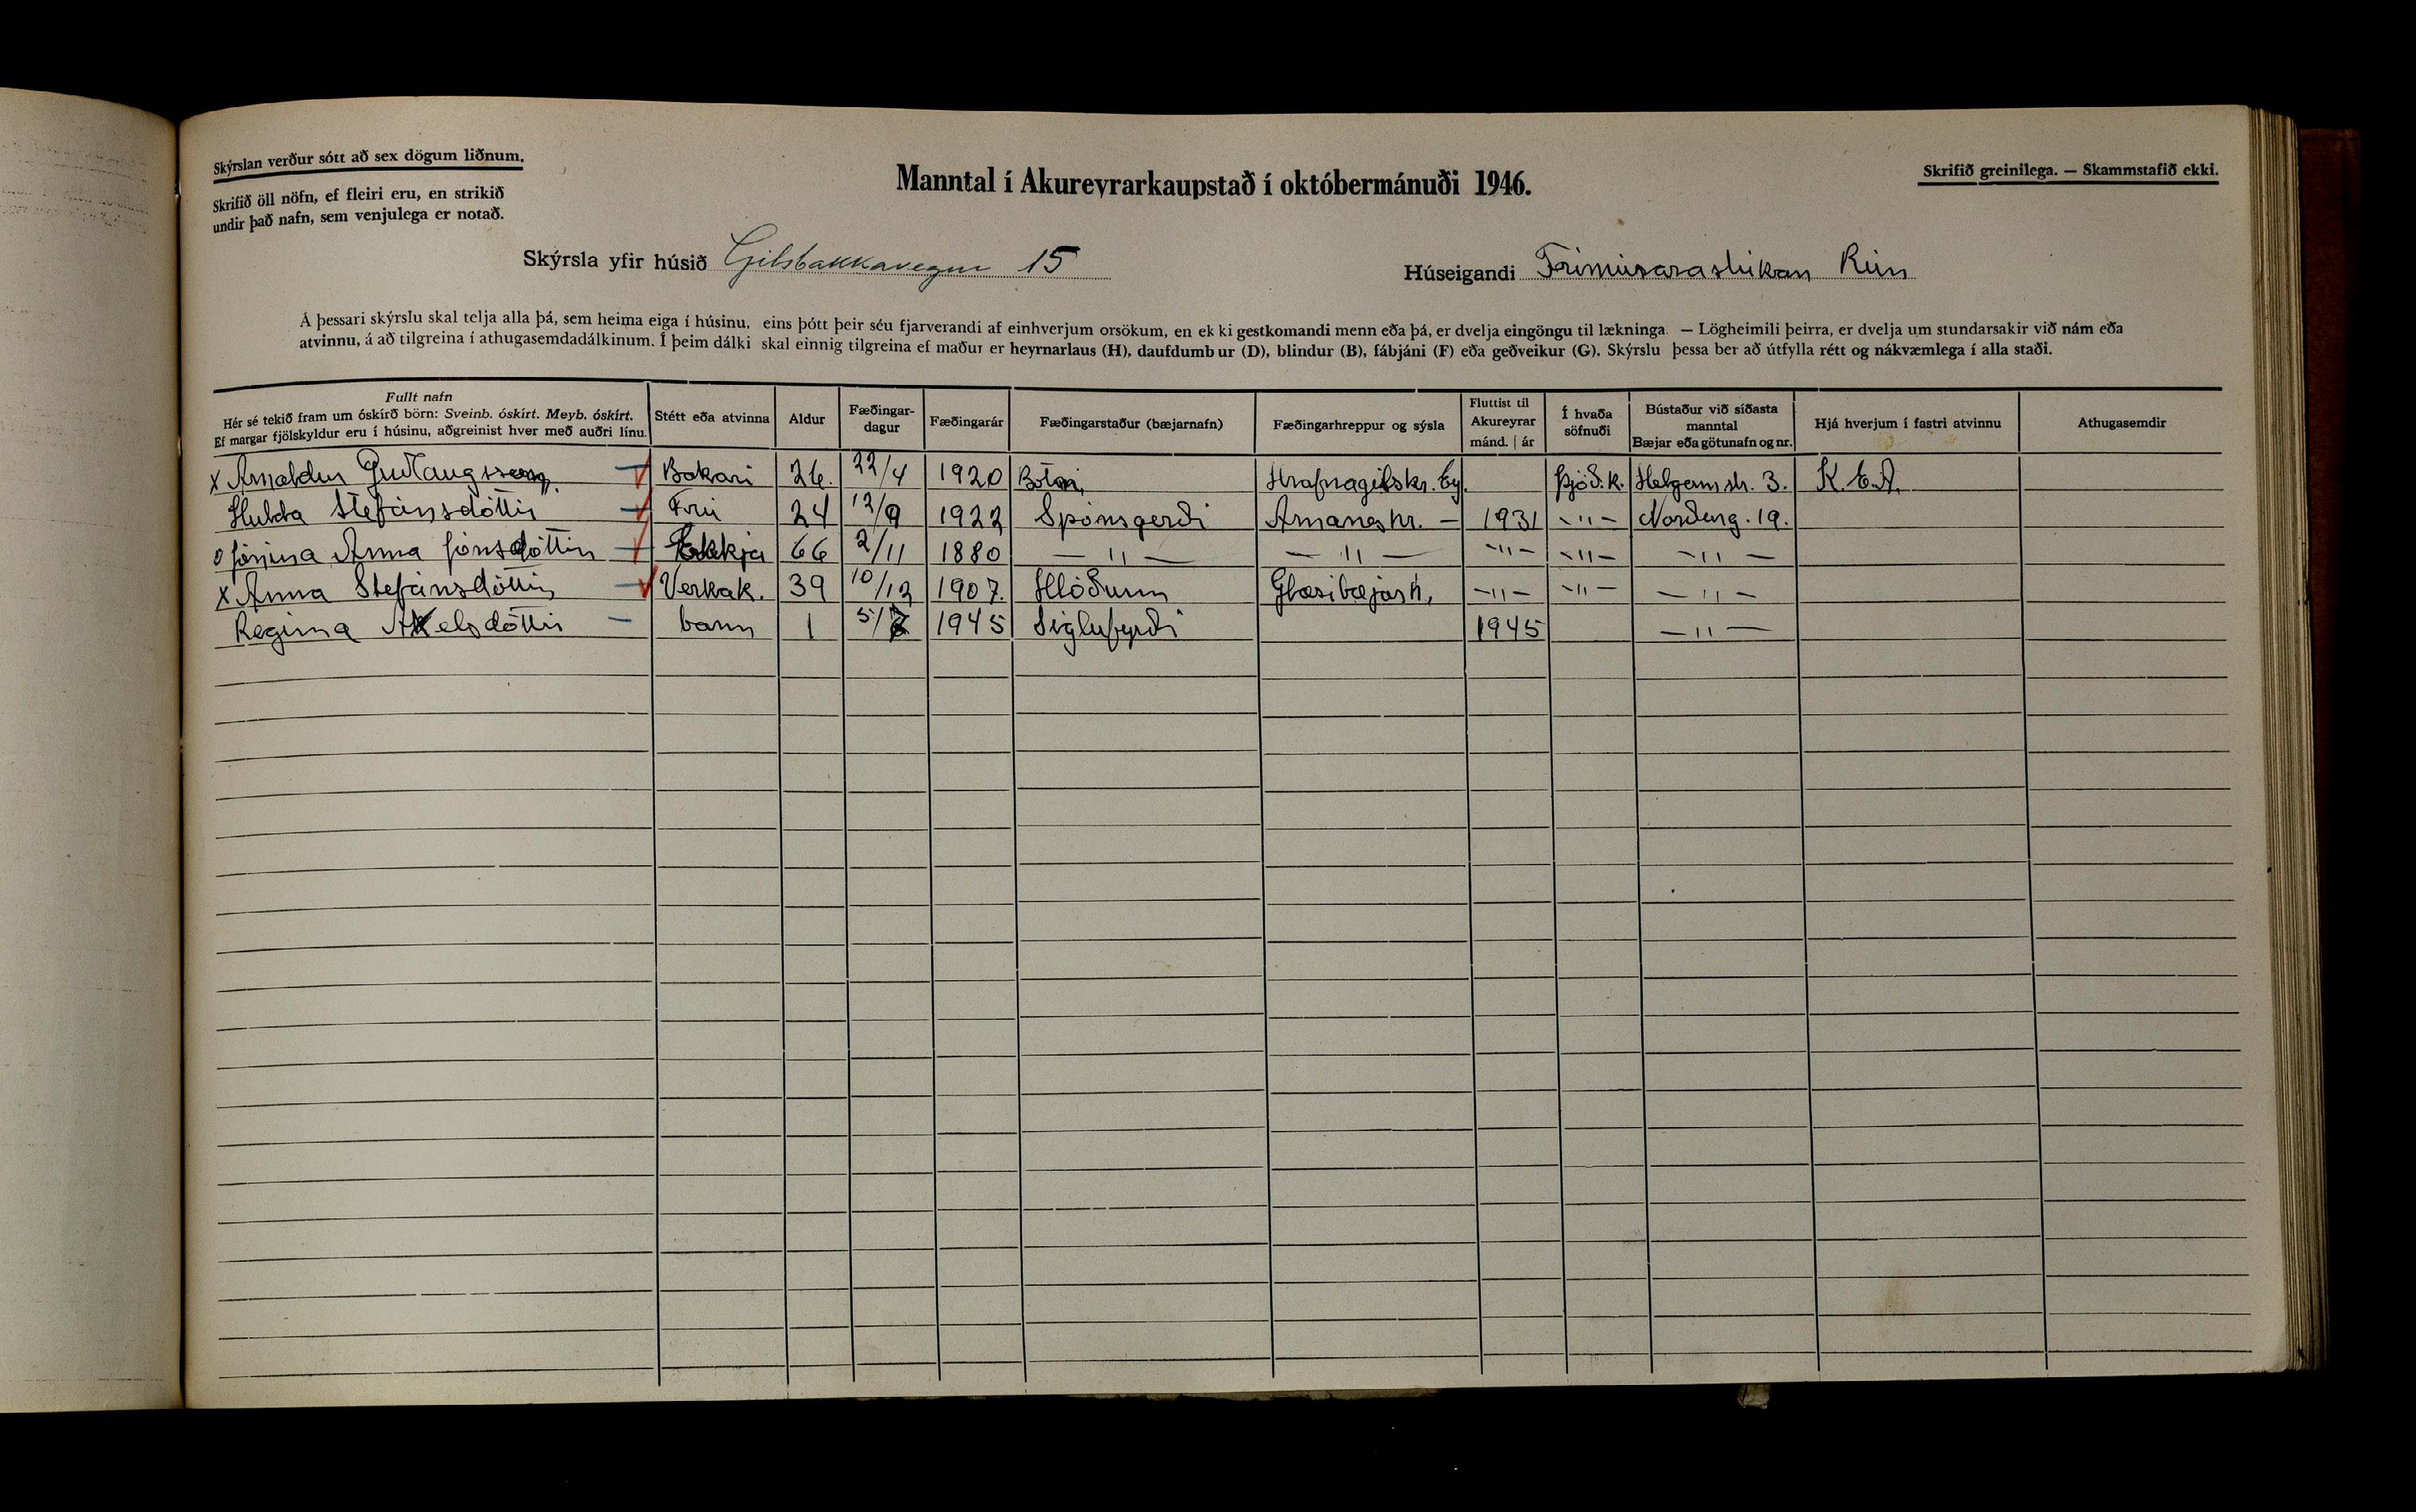 Skýrslan verður sótt að sex dögum liðnum.
Skrifið öll nöfn, ef fleiri eru, en strikið
undir það nafn, sem venjulega er notað.
Manntal í Akureyrarkaupstað í októbermánuði 1946.
Skrifið greinilega. — Skammstafið ekki.
Skýrsla yfir húsið Gilsbakkavegur 15
Húseigandi Frímúrarastúkan Rún
Á þessari skýrslu skal telja alla þá, sem heima eiga í húsinu, eins þótt þeir séu fjarverandi af einhverjum orsökum, en ekki gestkomandi menn eða þá, er dvelja eingöngu til lækninga. — Lögheimili þeirra, er dvelja um stundarsakir við nám eða
atvinnu, á að tilgreina í athugasemdadálkinum. Í þeim dálki skal einnig tilgreina ef maður er heyrnarlaus (H), daufdumbur (D), blindur (B), fábjáni (F) eða geðveikur (G). Skýrslu þessa ber að útfylla rétt og nákvæmlega í alla staði.
Fullt nafn
Hér sé tekið fram um óskírð börn: Sveinb. óskírt. Meyb. óskírt.
Ef margar fjölskyldur eru í húsinu, aðgreinist hver með auðri línu.
Stétt eða atvinna
Aldur
Fæðingar-
dagur
Fæðingarár
Fæðingarstaður (bæjarnafn)
Fæðingarhreppur og sýsla
Fluttist til
Akureyrar
mánd. | ár
Í hvaða
söfnuði
Bústaður við síðasta
manntal
Bæjar eða götunafn og nr.
Hjá hverjum í fastri atvinnu
Athugasemdir
x Arnaldur Guðlaugsson Bakari 26. 22/4 1920 Botni Hrafnagilskr. Ey. Þjóð.k. Helgam.str. 3. K.E.A.
Hulda Stefánsdóttir Frú 24 12/9 1922 Spónsgerði Arnaneshr. — 1931 -"- Norðurg. 19.
o Jónína Anna Jónsdóttir Ekkja 66 2/11 1880 — " — — " — -"- -"- — " —
x Anna Stefánsdóttir Verkak. 39 10/12 1907. Hlöðum Glæsibæjarh. -"- -"- — " —
Regína Axelsdóttir barn 1 1945 Siglufyrði 1945 — " —